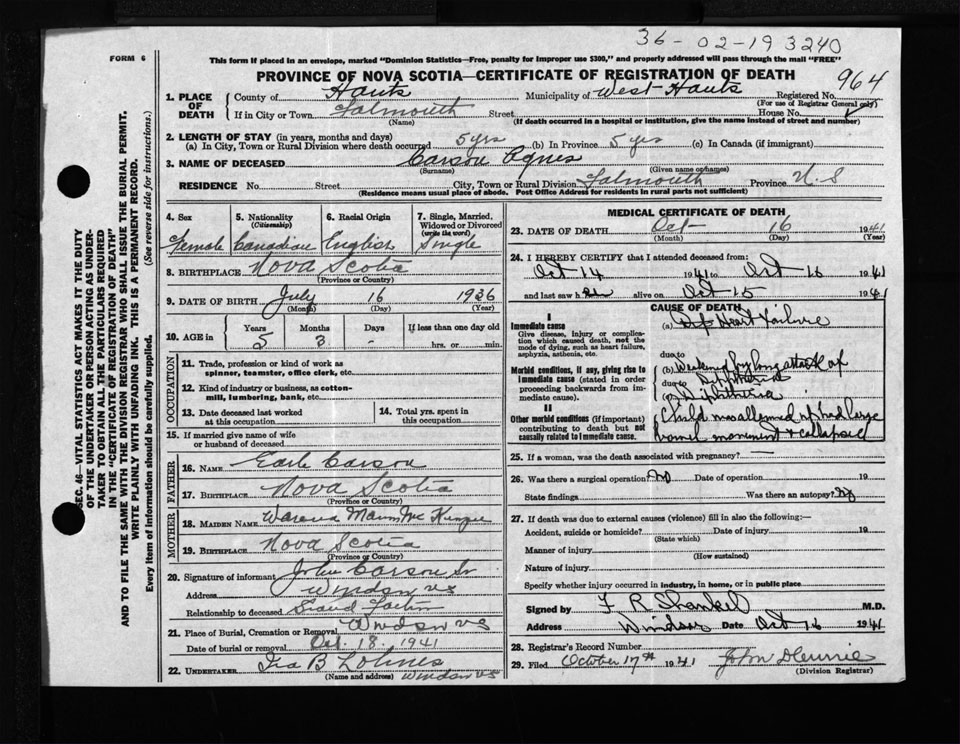 36-02-19 3240
FORM 6
This form if placed in an envelope, marked "Dominion Statistics—Free, penalty for improper use $300," and properly addressed will pass through the mail "FREE"
PROVINCE OF NOVA SCOTIA—CERTIFICATE OF REGISTRATION OF DEATH
964
1. PLACE OF DEATH County of Hants Municipality of West Hants Registered No.
(For use of Registrar General only)
If in City or Town Falmouth Street House No.
(Name) (If death occurred in a hospital or institution, give the name instead of street and number)
2. LENGTH OF STAY (in years, months and days)
(a) In City, Town or Rural Division where death occurred 5 yrs (b) In Province 5 yrs (c) In Canada (if immigrant)
3. NAME OF DECEASED Carson Agnes
(Surname) (Given name or names)
RESIDENCE No. Street City, Town or Rural Division Falmouth Province N.S
(Residence means usual place of abode. Post Office Address for residents in rural parts not sufficient)
4. Sex 5. Nationality (Citizenship) 6. Racial Origin 7. Single, Married, Widowed or Divorced (write the word)
Female Canadian English Single
8. BIRTHPLACE Nova Scotia
(Province or Country)
9. DATE OF BIRTH July 16 1936
(Month) (Day) (Year)
10. AGE in Years Months Days If less than one day old
5 3 - hrs. or min.
OCCUPATION
11. Trade, profession or kind of work as spinner, teamster, office clerk, etc.
12. Kind of industry or business, as cotton-mill, lumbering, bank, etc.
13. Date deceased last worked at this occupation
14. Total yrs. spent in this occupation
15. If married give name of wife or husband of deceased
FATHER
16. NAME Earle Carson
17. BIRTHPLACE Nova Scotia
(Province or Country)
MOTHER
18. MAIDEN NAME McKenzie
19. BIRTHPLACE Nova Scotia
(Province or Country)
20. Signature of informant John Carson Sr
Address Windsor NS
Relationship to deceased Grand Father
21. Place of Burial, Cremation or Removal Windsor NS
Date of burial or removal Oct. 18. 1941
22. UNDERTAKER Ira B Lohnes
(Name and address) Windsor NS
MEDICAL CERTIFICATE OF DEATH
23. DATE OF DEATH Oct 16 1941
(Month) (Day) (Year)
24. I HEREBY CERTIFY that I attended deceased from:
Oct 14 1941 to Oct 16 1941
and last saw h er alive on Oct 15 1941
CAUSE OF DEATH
I
Immediate cause
Give disease, injury or complication which caused death, not the mode of dying, such as heart failure, asphyxia, asthenia, etc.
(a) Heart Failure
due to
Morbid conditions, if any, giving rise to immediate cause (stated in order proceeding backwards from immediate cause).
(b) attack of
due to
(c) Diphtheria
II
Other morbid conditions (if important) contributing to death but not causally related to immediate cause.
Child was allowed up had large
bowel movement & collapsed
25. If a woman, was the death associated with pregnancy? —
26. Was there a surgical operation? No Date of operation 19
State findings Was there an autopsy? No
27. If death was due to external causes (violence) fill in also the following:—
Accident, suicide or homicide? Date of injury 19
(State which)
Manner of injury
(How sustained)
Nature of injury
Specify whether injury occurred in industry, in home, or in public place
Signed by F R Shankel M.D.
Address Windsor Date Oct 16 1941
28. Registrar's Record Number
29. Filed October 17th 1941
(Division Registrar)
SEC. 46—VITAL STATISTICS ACT MAKES IT THE DUTY
OF THE UNDERTAKER OR PERSON ACTING AS UNDER-
TAKER TO OBTAIN ALL THE PARTICULARS REQUIRED
IN THE "CERTIFICATE OF REGISTRATION OF DEATH"
AND TO FILE THE SAME WITH THE DIVISION REGISTRAR WHO SHALL ISSUE THE BURIAL PERMIT.
WRITE PLAINLY WITH UNFADING INK. THIS IS A PERMANENT RECORD.
Every item of information should be carefully supplied. (See reverse side for instructions.)